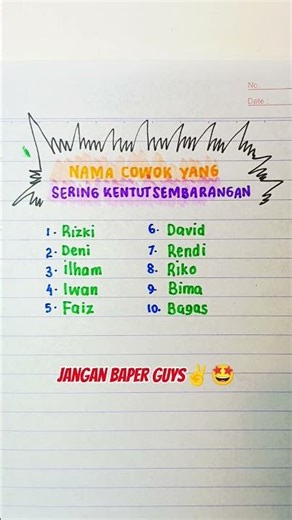 No.
Date :
NAMA COWOK YANG
SERING KENTUT SEMBARANGAN
1. Rizki
2. Deni
3. ilham
4. Iwan
5. Faiz
6. David
7. Rendi
8. Riko
9. Bima
10. Bagas
JANGAN BAPER GUYS✌🤩